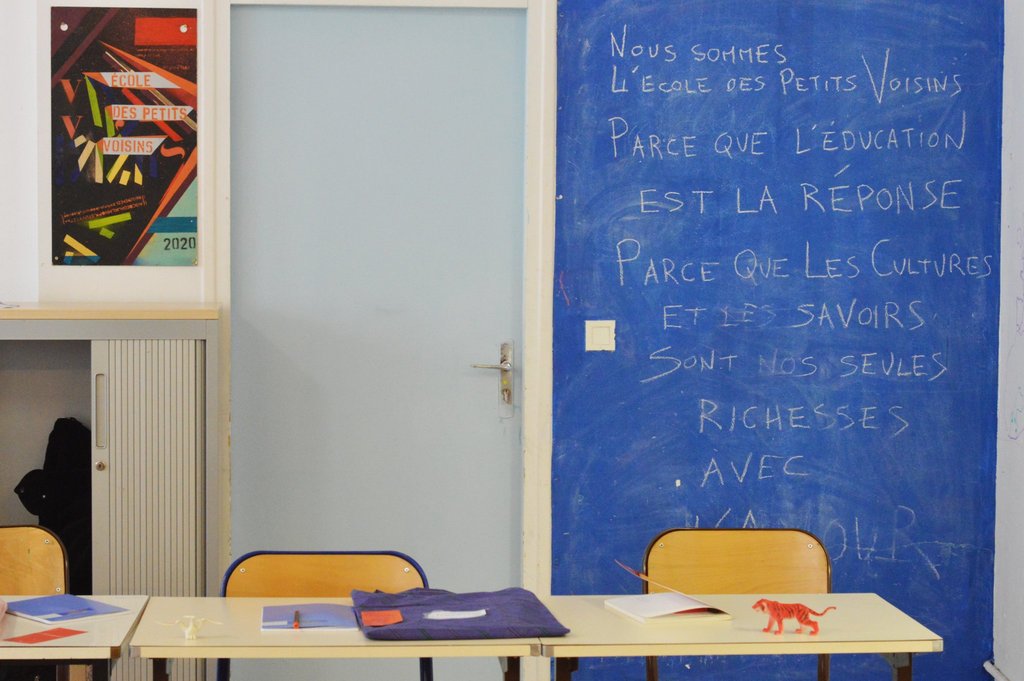 ÉCOLE
DES PETITS
VOISINS
2020
NOUS SOMMES
L'ECOLE DES PETITS VOISINS
PARCE QUE L'ÉDUCATION
EST LA RÉPONSE
PARCE QUE LES CULTURES
ET LES SAVOIRS
SONT NOS SEULES
RICHESSES
AVEC
L'AMOUR